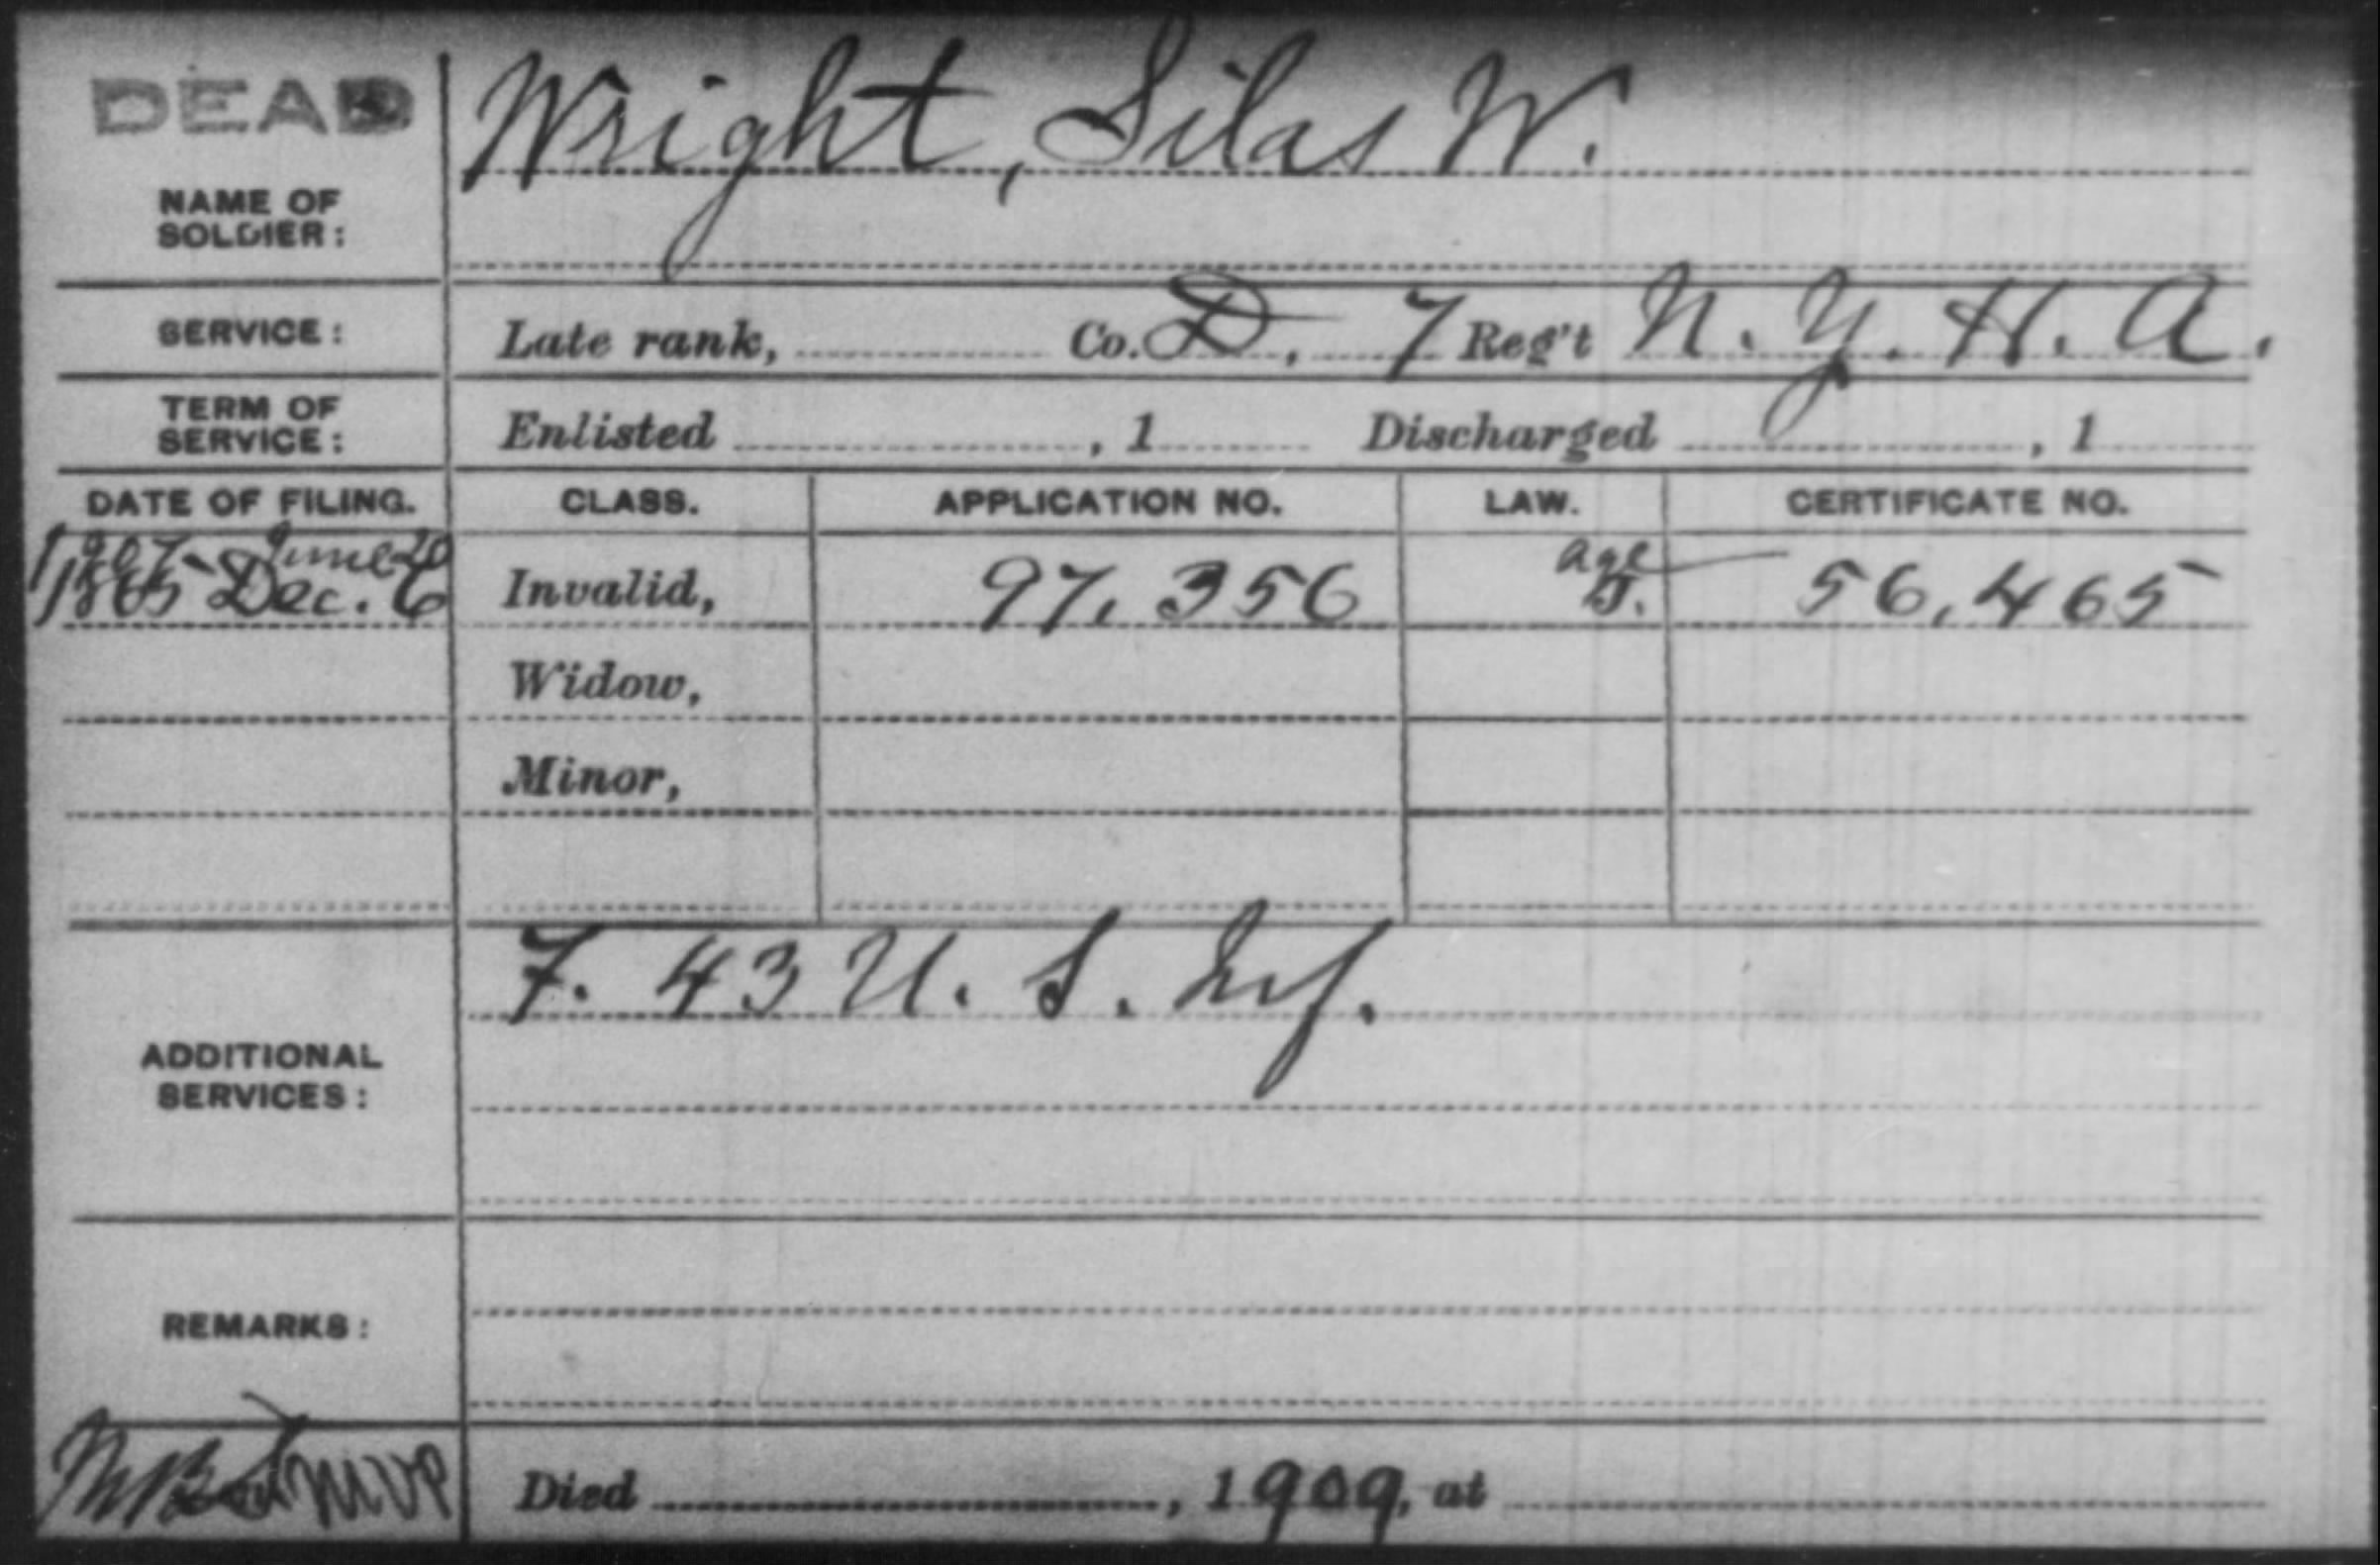 DEAD
Wright, Silas W.
NAME OF
SOLDIER:
SERVICE: Late rank, Co. D, 7 Reg't N. Y. H. A.
TERM OF
SERVICE: Enlisted , 1 Discharged , 1
DATE OF FILING. CLASS. APPLICATION NO. LAW. CERTIFICATE NO.
1907 June 20 age
1865 Dec. 6 Invalid, 97,356 56,465
Widow,
Minor,
F. 43 U. S. Inf.
ADDITIONAL
SERVICES:
REMARKS:
MVP Died , 1909, at